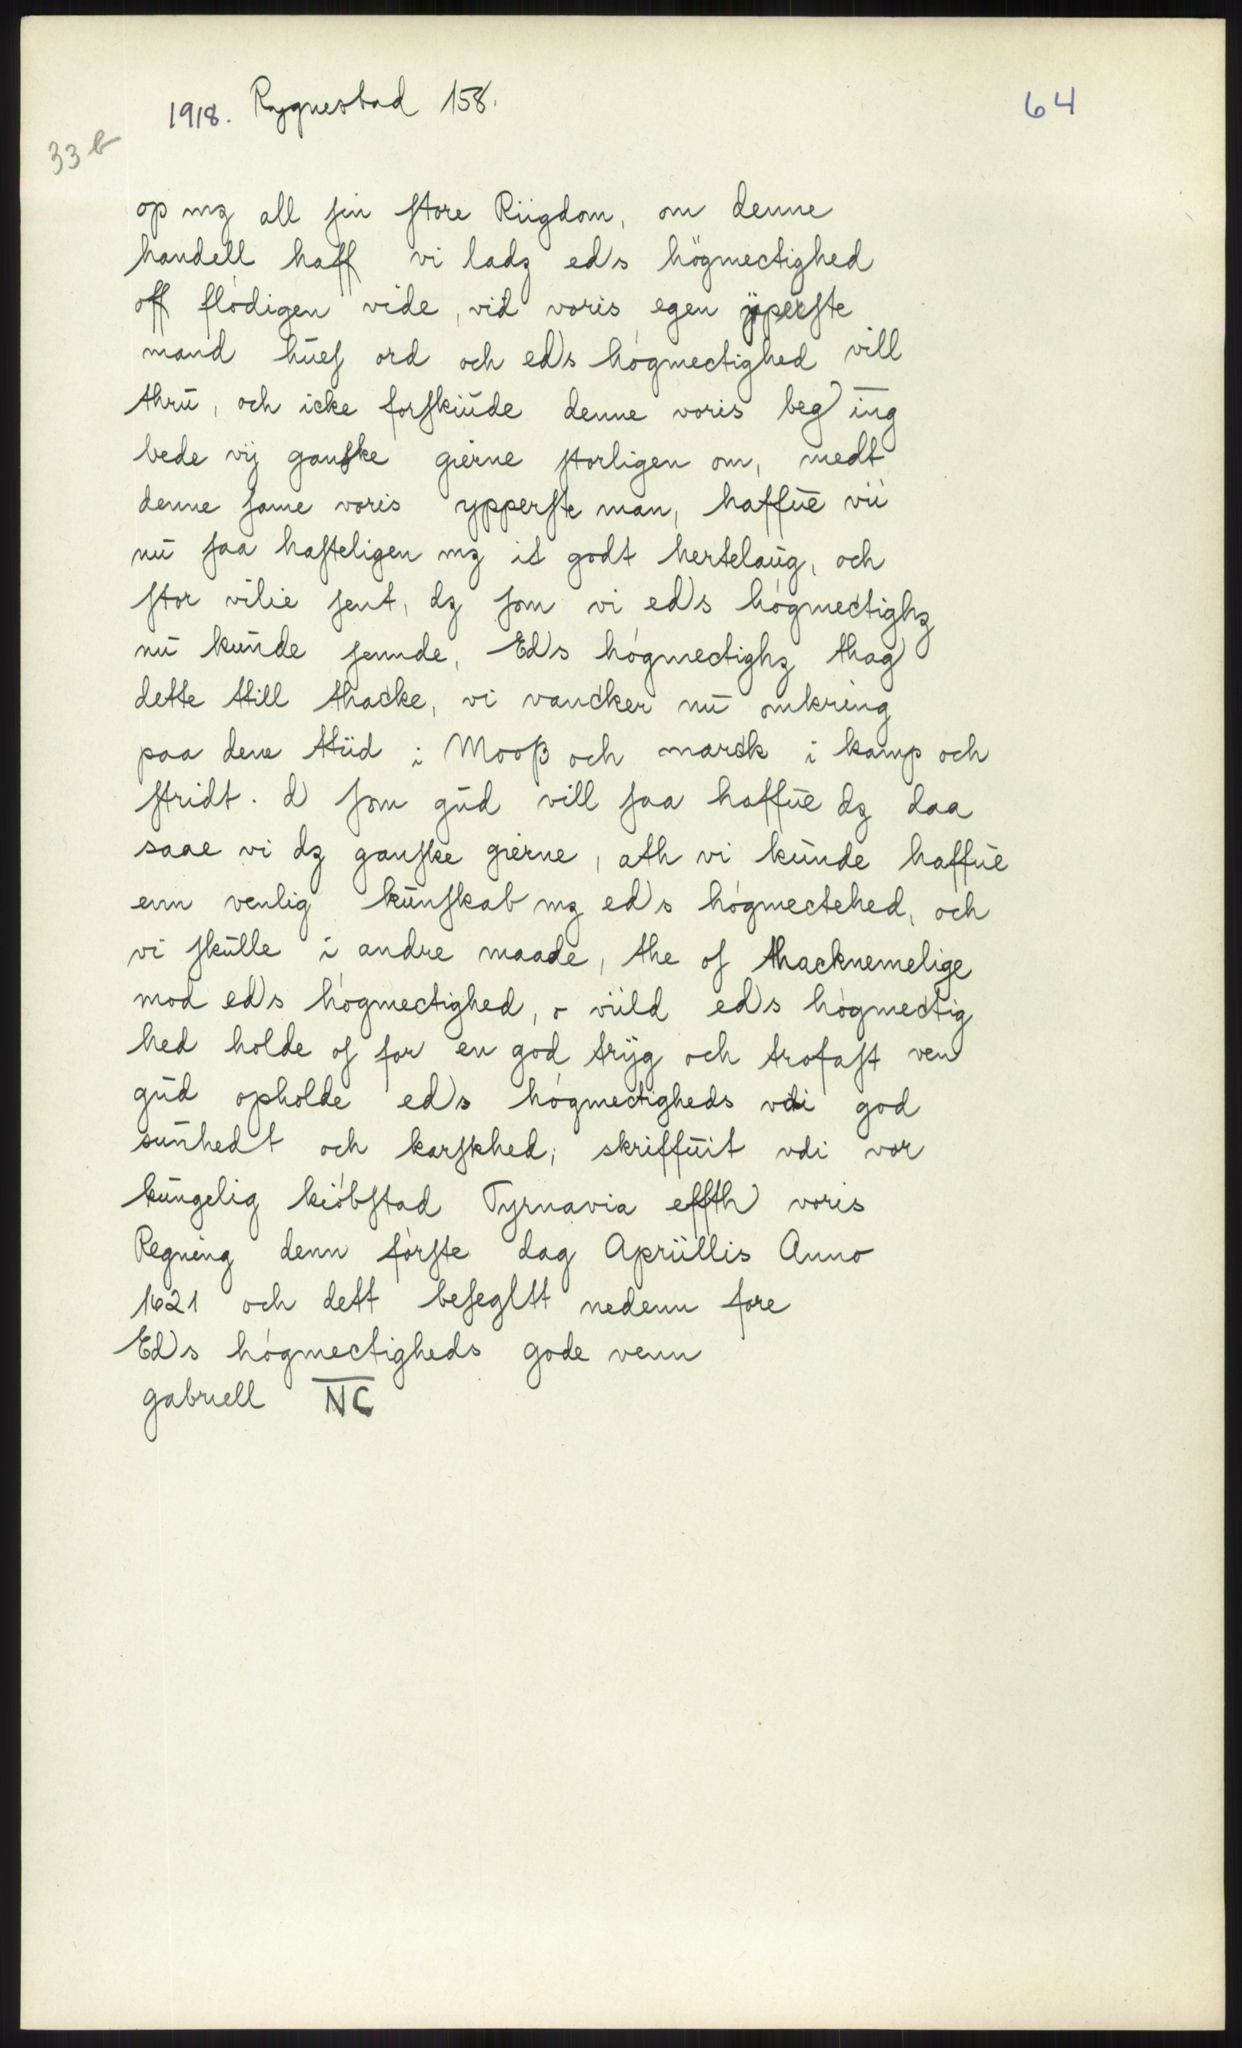 1918. Rygnestad 158.
64
33 b
op mz all ſin ſtore Riigdom, om denne
handell haff vi ladz eds högmectighed
off flödigen vide, vid voris egen ÿperſte
mand hueſ ord och eds högmectighed vill
thrū, och icke forſkiūde denne voris beg ing
bede vÿ ganſke gierne ſtorligen om, medt
denne ſame voris ypperſte man, haffūe vii
nū ſaa haſteligen mz it godt hertelaūg, och
ſtor vilie ſent, dz ſom vi eds högmectighz
nū kūnde ſennde, Eds högmectighz thag
dette till thacke, vi vancker nū omkring
paa dene tiid i Mooß och marck i kamp och
ſtridt. d ſom gūd vill ſaa haffūe dz daa
saae vi dz ganſke gierne, ath vi kūnde haffūe
enn venlig kūnſkab mz eds högmectehed, och
vi ſkūlle i andre maade, the oſ thacknemelige
mod eds högmectighed, o viild eds högmectig
hed holde oſ for en god trÿg och trofaſt ven
gūd opholde eds högmectigheds vdi god
sūnhedt och karſkhed, skriffūit vdi vor
kūngelig kiöbſtad Tyrnavia effth voris
Regning denn förſte dag Apriillis Anno
1621 och dett beſegltt nedenn fore
Eds högmectigheds gode venn
gabriell NC